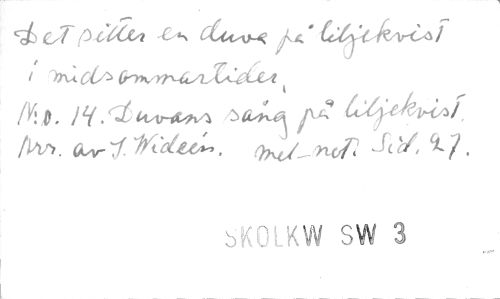 Det sitter en duva på liljekvist
i midsommartider,
N:o. 14. Duvans sång på liljekvist.
Arr. av I. Widéen. mel-not. Sid. 27.
SKOLKW SW 3